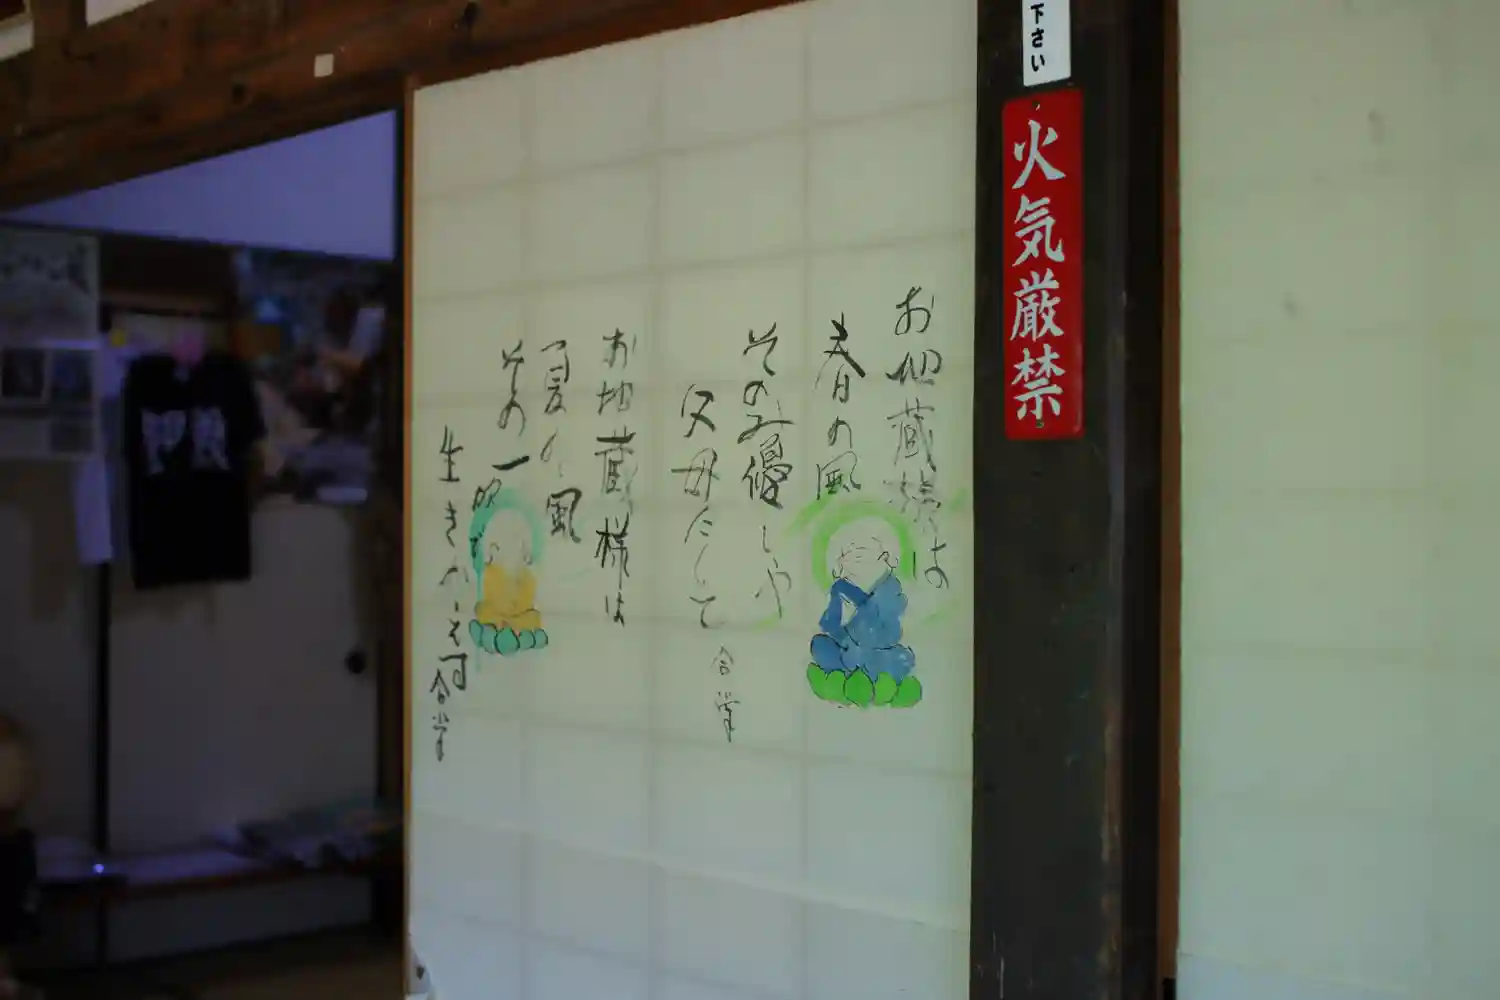 下さい
火気厳禁
お地蔵様は
春の風
そのみ優しや
父母にして
合掌
お地蔵様は
夏の風
その一吹で
生きかえす
合掌